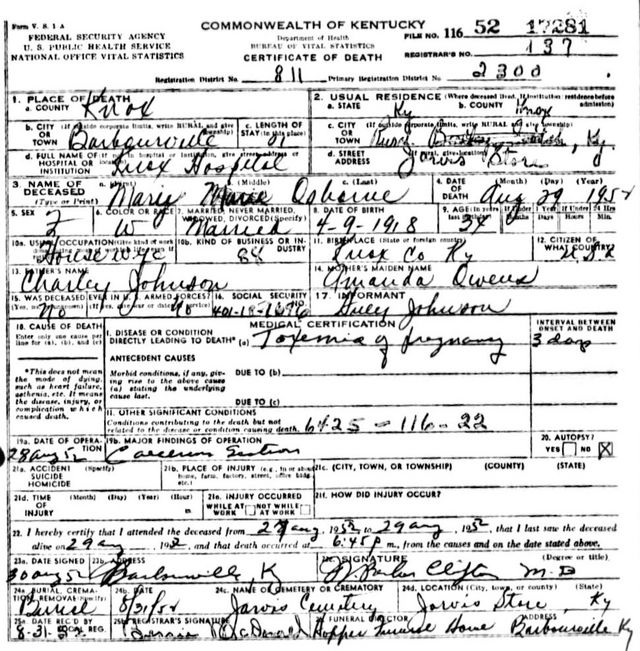 Form V. S. 1 A
COMMONWEALTH OF KENTUCKY
FEDERAL SECURITY AGENCY
U. S. PUBLIC HEALTH SERVICE
NATIONAL OFFICE VITAL STATISTICS
Department of Health
BUREAU OF VITAL STATISTICS
CERTIFICATE OF DEATH
FILE NO. 116 52 17281
REGISTRAR'S NO. 137
Registration District No. 811 Primary Registration District No. 2300
1. PLACE OF DEATH
a. COUNTY Knox
2. USUAL RESIDENCE (Where deceased lived. If institution: residence before admission)
a. STATE Ky b. COUNTY Knox
b. CITY OR TOWN (If outside corporate limits, write RURAL and give township) Barbourville
c. LENGTH OF STAY (in this place) 01
c. CITY OR TOWN (If outside corporate limits, write RURAL and give township) Ky.
d. FULL NAME OF HOSPITAL OR INSTITUTION (If not in hospital or institution, give street address or location) Knox Hospital
d. STREET ADDRESS (If rural, give location) Jarvis Store
3. NAME OF DECEASED (Type or Print)
a. (First) Mary b. (Middle) Marie c. (Last) Osborne
4. DATE OF DEATH (Month) (Day) (Year) Aug 29 1952
5. SEX F
6. COLOR OR RACE W
7. MARRIED, NEVER MARRIED, WIDOWED, DIVORCED (Specify) Married
8. DATE OF BIRTH 4-9-1918
9. AGE (In years last birthday) 34
If Under 1 Year Months Days If Under 24 Hrs. Hours Min.
10a. USUAL OCCUPATION (Give kind of work Housewife
10b. KIND OF BUSINESS OR INDUSTRY 88
11. BIRTHPLACE (State or foreign country) Knox Co Ky
12. CITIZEN OF WHAT COUNTRY? U S A
13. FATHER'S NAME Charley Johnson
14. MOTHER'S MAIDEN NAME Amanda Owens
15. WAS DECEASED EVER IN U. S. ARMED FORCES? No
16. SOCIAL SECURITY NO.
17. INFORMANT Johnson
18. CAUSE OF DEATH
Enter only one cause per line for (a), (b), and (c)
MEDICAL CERTIFICATION
INTERVAL BETWEEN ONSET AND DEATH
I. DISEASE OR CONDITION DIRECTLY LEADING TO DEATH* (a) Toxemia of pregnancy 3 days
*This does not mean the mode of dying, such as heart failure, asthenia, etc. It means the disease, injury, or complication which caused death.
ANTECEDENT CAUSES
Morbid conditions, if any, giving rise to the above cause (a) stating the underlying cause last.
DUE TO (b)
DUE TO (c)
II. OTHER SIGNIFICANT CONDITIONS
Conditions contributing to the death but not related to the disease or condition causing death. 6425 - 116-22
19a. DATE OF OPERATION 28 Aug 52
19b. MAJOR FINDINGS OF OPERATION Section
20. AUTOPSY? YES NO X
21a. ACCIDENT SUICIDE HOMICIDE (Specify)
21b. PLACE OF INJURY (e.g., in or about home, farm, factory, street, office bldg., etc.)
21c. (CITY, TOWN, OR TOWNSHIP) (COUNTY) (STATE)
21d. TIME OF INJURY (Month) (Day) (Year) (Hour) m.
21e. INJURY OCCURRED WHILE AT WORK NOT WHILE AT WORK
21f. HOW DID INJURY OCCUR?
22. I hereby certify that I attended the deceased from 27 Aug, 1952, to 29 Aug, 1952, that I last saw the deceased
alive on 29 Aug, 1952, and that death occurred at 6:45 p m., from the causes and on the date stated above.
23a. DATE SIGNED 30 Aug 52
23b. ADDRESS Barbourville, Ky
23c. SIGNATURE (Degree or title) Clifton M.D
24a. BURIAL, CREMATION, REMOVAL (Specify) Burial
24b. DATE 8/31/52
24c. NAME OF CEMETERY OR CREMATORY Jarvis Cemetery
24d. LOCATION (City, town, or county) (State) Jarvis Store, Ky
25a. DATE REC'D BY LOCAL REG. 8-31-52
25b. REGISTRAR'S SIGNATURE
26. FUNERAL DIRECTOR Hopper Funeral Home
ADDRESS Barbourville Ky